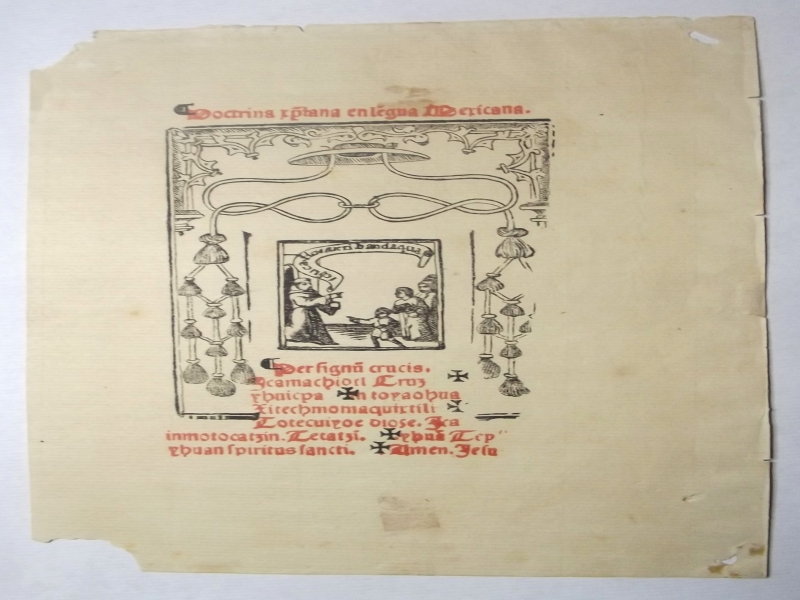 Doctrina xp̃iana en lẽgua Mexicana.
Per signũ crucis.
Icamachiotl Cruz
yhuicpa ✠ in toyaohua
Xitechmomaquixtili ✠
Totecuiyoe diose. Ica
inmotocatzin. Tetatzĩ. ✠ yhuã Tep
yhuan spiritus sancti. ✠ Amen. Jesu